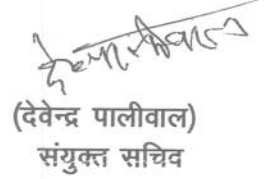 (देवेन्द्र पालीवाल)
संयुक्त सचिव